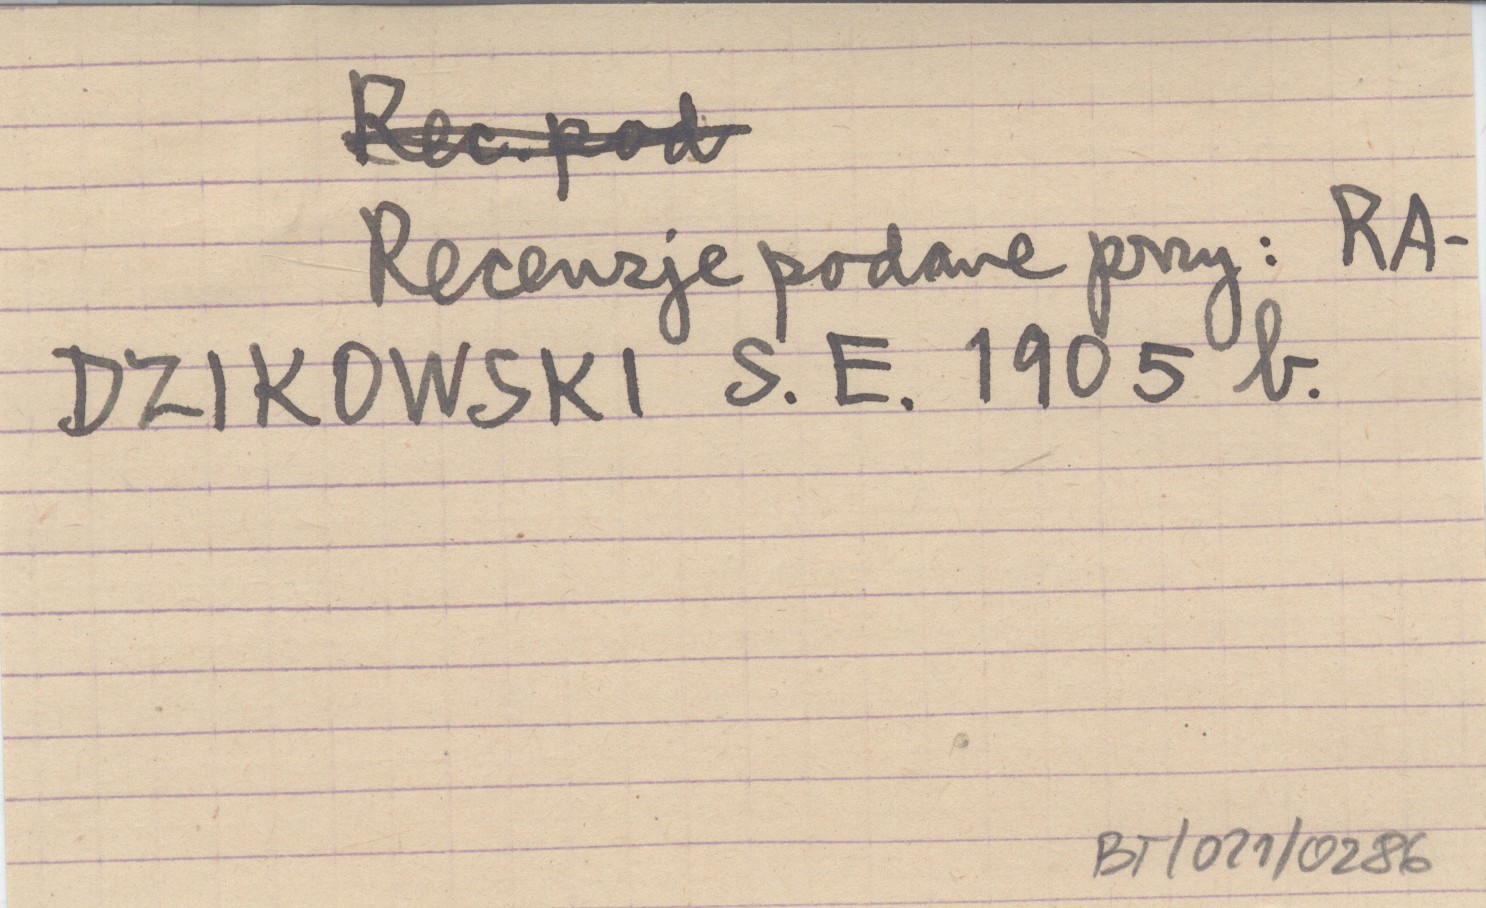 Rec. pod
Recenzje podane przy: RA-
DZIKOWSKI S. E. 1905 b.
BT/021/0286